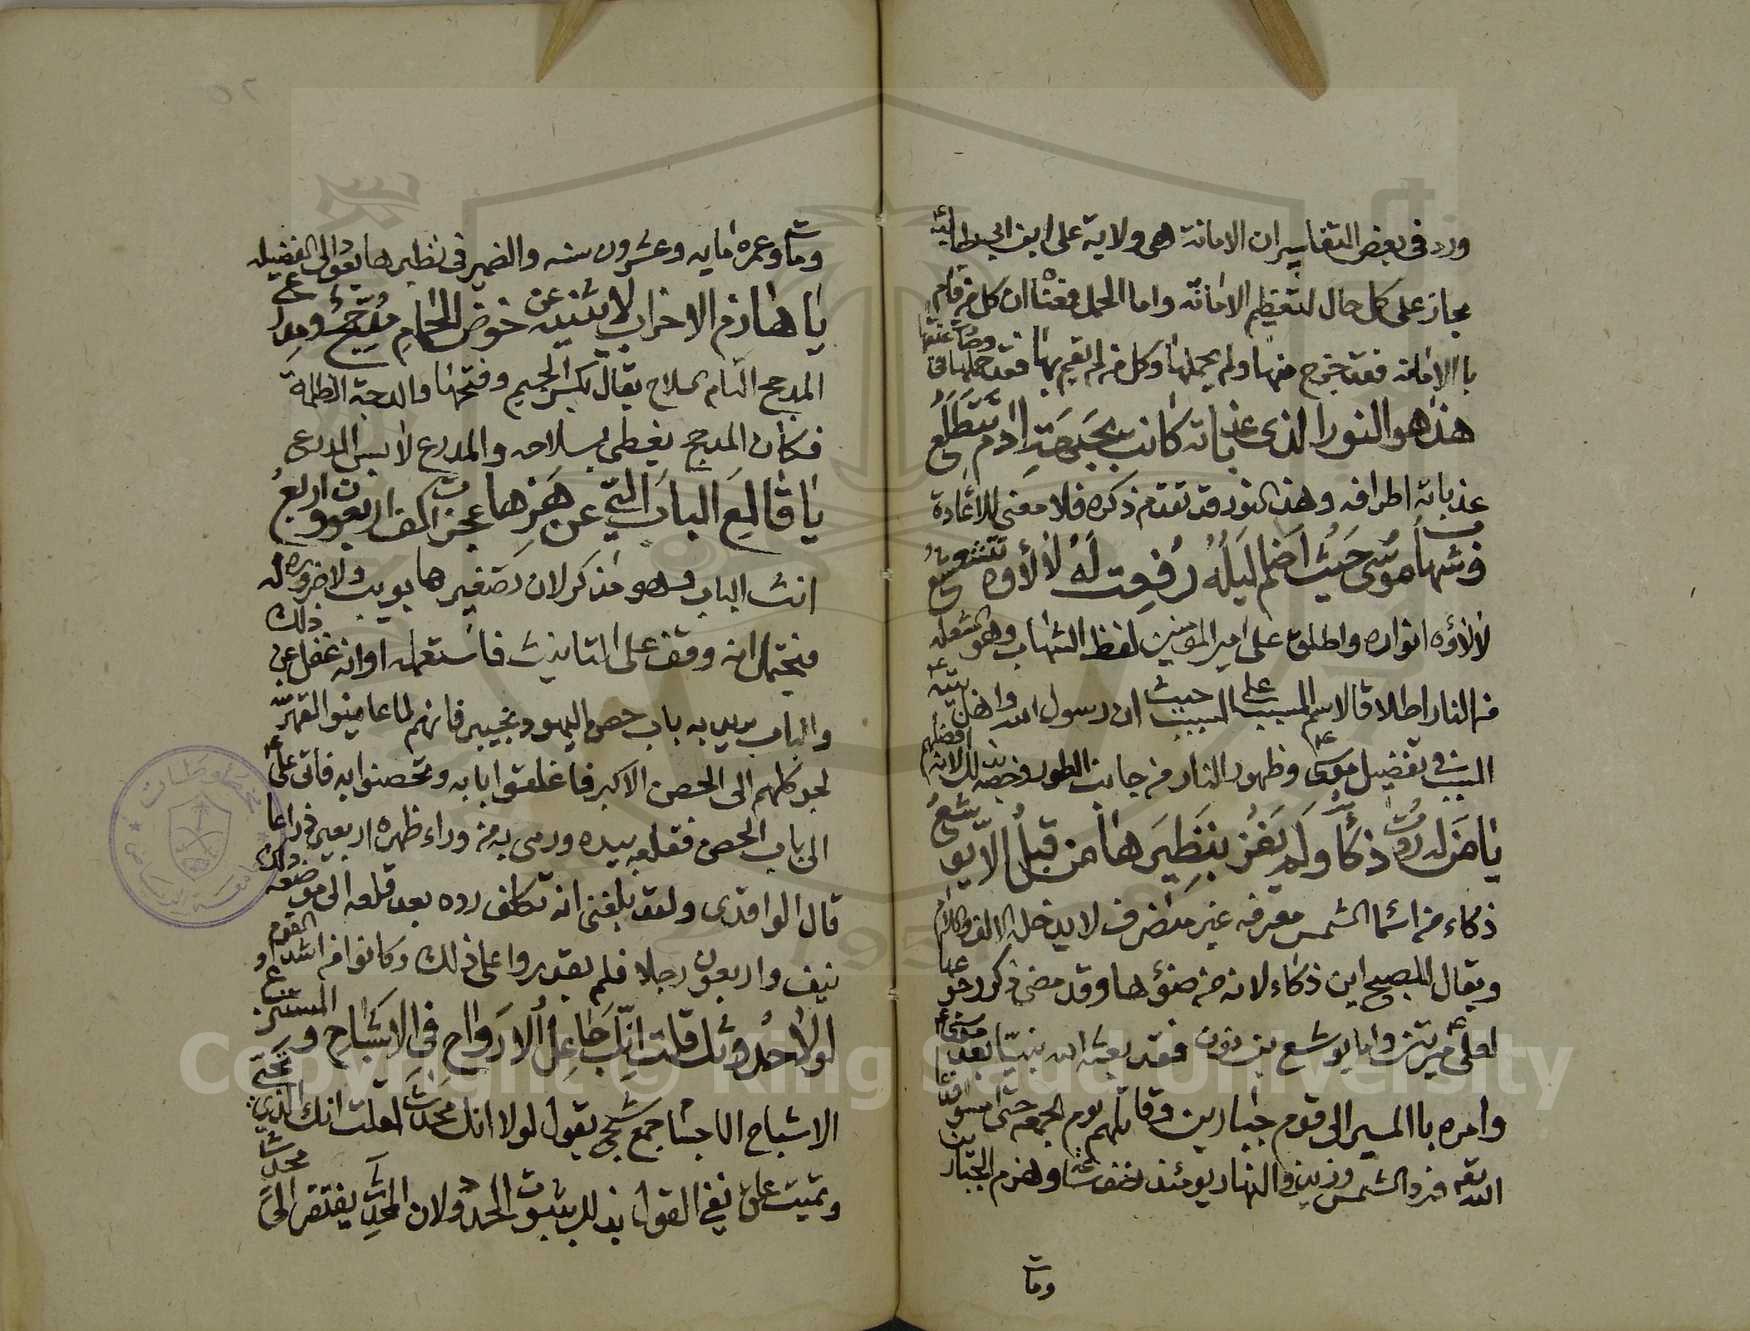 ورد في بعض التفاسير ان الامانة هي ولاية على ابن ابي طالب ع
مجاز على كل حال لتعظيم الامانة واما الحمل فمعناه ان كل من قام
با الامانة فقد خرج منها ولم يحملها وكل من لم يقم بها فقد حملها في
هذا هو النور الذي عذباته كانت بجبهة ادم تتطلع
عذباته اطرافه وهذا النور قد تقدم ذكره فلا معنى للاعادة
وشهاب موسى حيث اظلم ليله رفعت له لألاؤه تتشعشع
لألاؤه انواره واطلق على امير المؤمنين لفظ الشهاب وهو الشعلة
من النار اطلاقا لاسم المسبب على السبب حيث ان رسول الله واهل بيته
السبب في تفضيل موسى ع وظهور النار من جانب الطور وخصه بذلك لانه افضلهم
يا من له ردت ذكاء ولم يفز بنظيرها من قبل الا يوشع
ذكاء من اسماء الشمس معرفه غير منصرف لا يدخله الالف واللام
ويقال للصبح ابن ذكاء لانه من ضوءها وقد مضى ذكر رجوعها
لعلي ع مرتين واما يوشع بن نون فقد بعثه الله نبيا بعد موسى ع
وامره با المسير الى قوم جبارين وقاتلهم يوم الجمعة حتى امسوا
الله فرد الشمس وزيد في النهار يومئذ نصف ساعة وهزم الجبارين
ومات
ومات وعمره مايه وعشرون سنه والضمير في نظيرها يعود الى الفضيله
يا هازم الاحزاب لا يثنيه عن خوض الحمام مدجج ومدرع
المدجج التام سلاح يقال بكسر الجيم وفتحها والدجة الظلمة
فكان المدجج يغطى بسلاحه والمدرع لابس الدرع
يا قالع الباب التي عن هزها عجزت اكف اربعون واربع
انث الباب وهو مذكر لان تصغيرها بويب ولا ضرورة له
فيحتمل انه وقف على التانيث فاستعمله او انه غفل عن ذلك
والباب يريد به باب حصن اليهود بخيبر فانهم لما عاينوا القهر
لجو كلهم الى الحصن الاكبر فاغلقوا بابه وتحصنوا به فاتى علي ع
الى باب الحصن فقلعه بيده ورمى به من وراء ظهره اربعين ذراعا
قال الواقدي ولقد بلغني انه تكلف رده بعد قلعه الى موضعه ذلك
نيف واربعون رجلا فلم يقدروا على ذلك وكانوا من اشداء القوم
لولا حدوثك قلت انك جاعل الارواح في الاشباح والمستنزع
الاشباح الاجسام جمع شبح يقول لولا انك محدث لقلت انك الذي تحيي
وتميت علق نفي القول بذلك بثبوت الحدوث لان المحدث يفتقر الى محدث